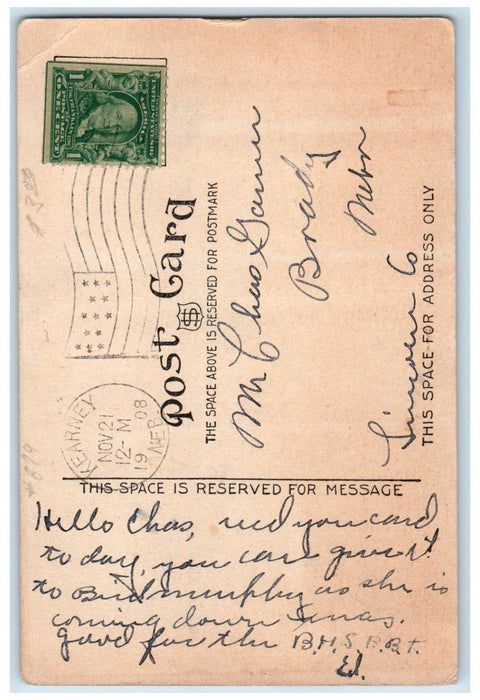 Post Card
THE SPACE ABOVE IS RESERVED FOR POSTMARK
KEARNEY
NOV 21
12-M
19 08
NEBR.
1 1
Mr Chas
Brady
Nebr
Lincoln Co
THIS SPACE FOR ADDRESS ONLY
THIS SPACE IS RESERVED FOR MESSAGE
Hello Chas, recd you card
to day, you can give it
to Bird murphy as she is
coming down Xmas.
good for the B.H.S.B.B.T.
Ed.